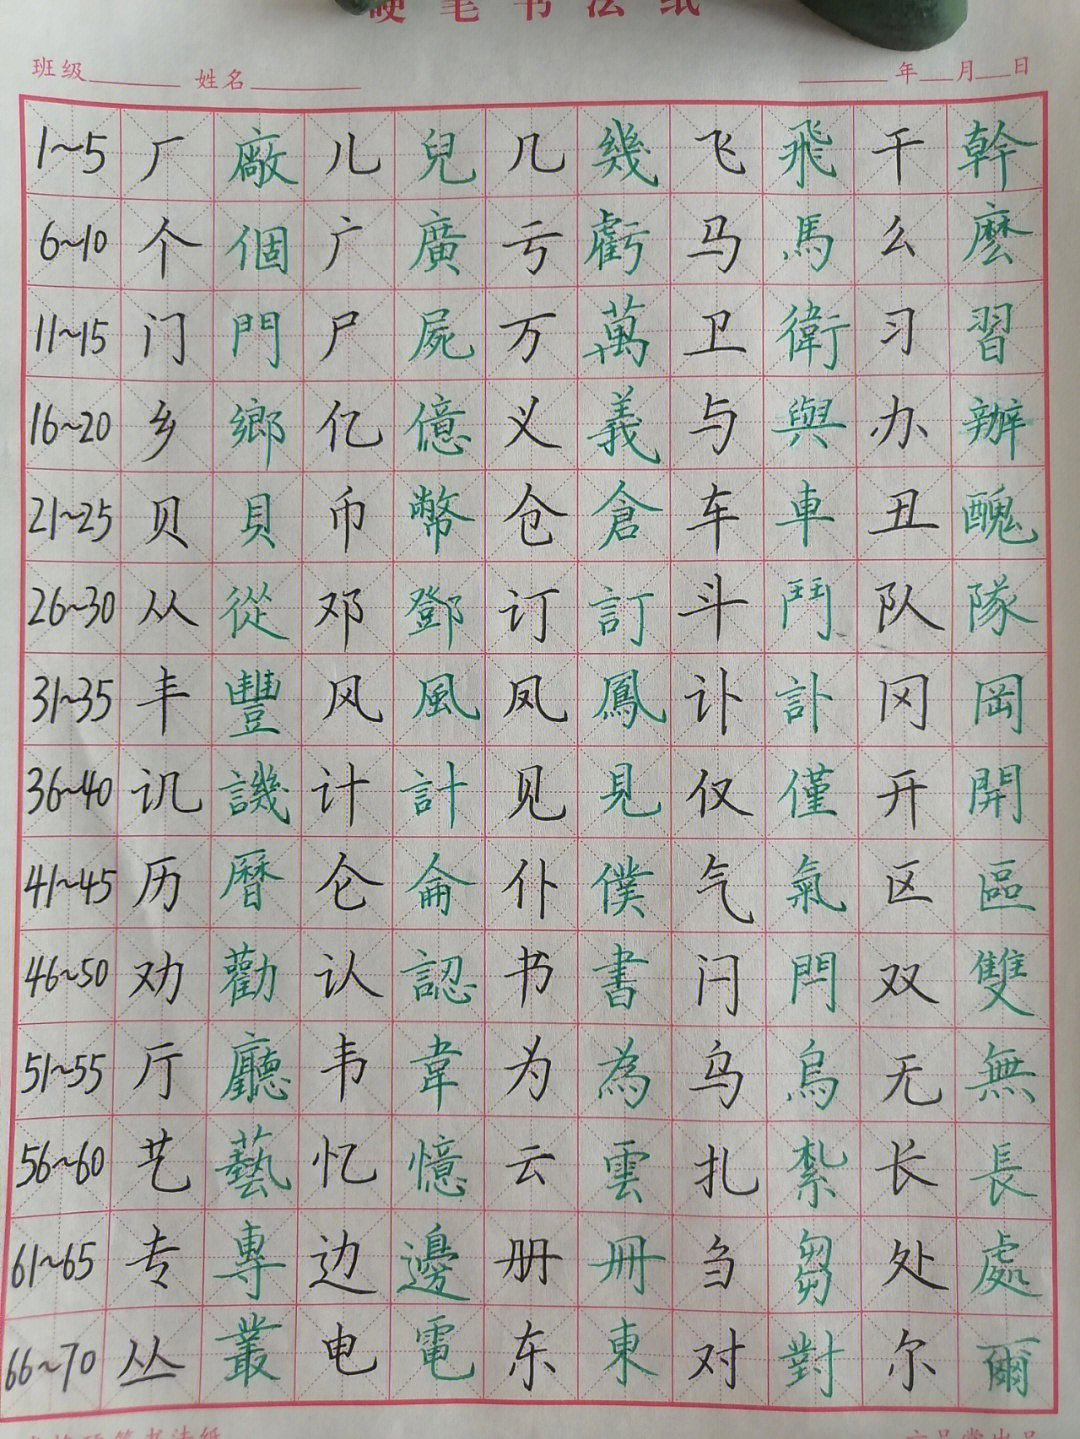 硬笔书法纸
班级 姓名 年 月 日
1~5 厂 廠 儿 兒 几 幾 飞 飛 干 幹
6~10 个 個 广 廣 亏 虧 马 馬 么 麼
11~15 门 門 尸 屍 万 萬 卫 衛 习 習
16~20 乡 鄉 亿 億 义 義 与 與 办 辦
21~25 贝 貝 币 幣 仓 倉 车 車 丑 醜
26~30 从 從 邓 鄧 订 訂 斗 鬥 队 隊
31~35 丰 豐 风 風 凤 鳳 讣 訃 冈 岡
36~40 讥 譏 计 計 见 見 仅 僅 开 開
41~45 历 曆 仑 侖 仆 僕 气 氣 区 區
46~50 劝 勸 认 認 书 書 闩 閂 双 雙
51~55 厅 廳 韦 韋 为 為 乌 烏 无 無
56~60 艺 藝 忆 憶 云 雲 扎 紮 长 長
61~65 专 專 边 邊 册 冊 刍 芻 处 處
66~70 丛 叢 电 電 东 東 对 對 尔 爾